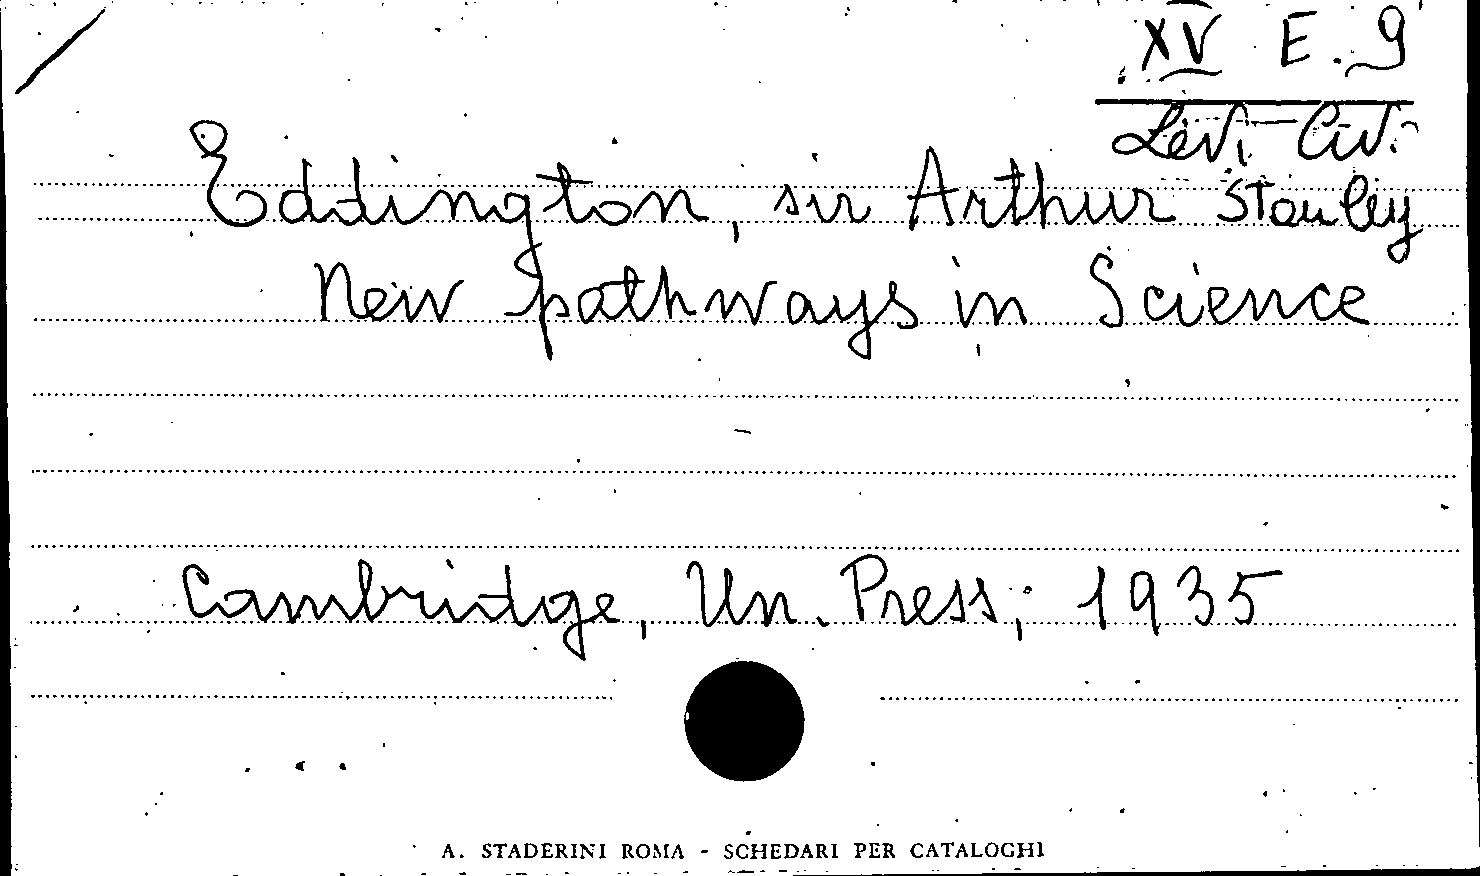 XV E. 9
Levi-Civ.
Eddington, sir Arthur Stanley
New pathways in Science
Cambridge, Un. Press, 1935
A. STADERINI ROMA - SCHEDARI PER CATALOGHI